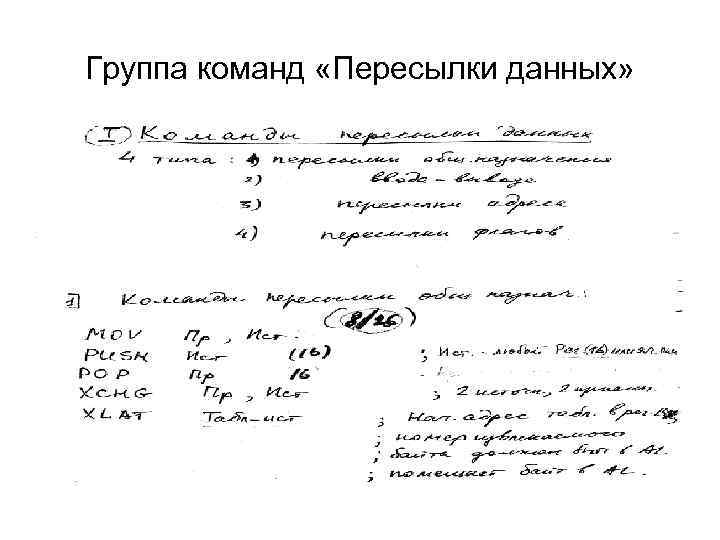 Группа команд «Пересылки данных»
(I) Команды пересылки данных
4 типа: 1) пересылки общ. назначения
2) ввода-вывода
3) пересылки адреса
4) пересылки флагов
1] Команды пересылки общ. назнач.:
(8/16)
MOV Пр, Ист
PUSH Ист (16) ; Ист. - любой Рег (16) или яч.
POP Пр 16
XCHG Пр, Ист ; 2 источн., 2 приемн.
XLAT Табл-ист ; Нач. адрес табл. в рег. BX
; номер извлекаемого
; байта должен быть в AL.
; помещает байт в AL.